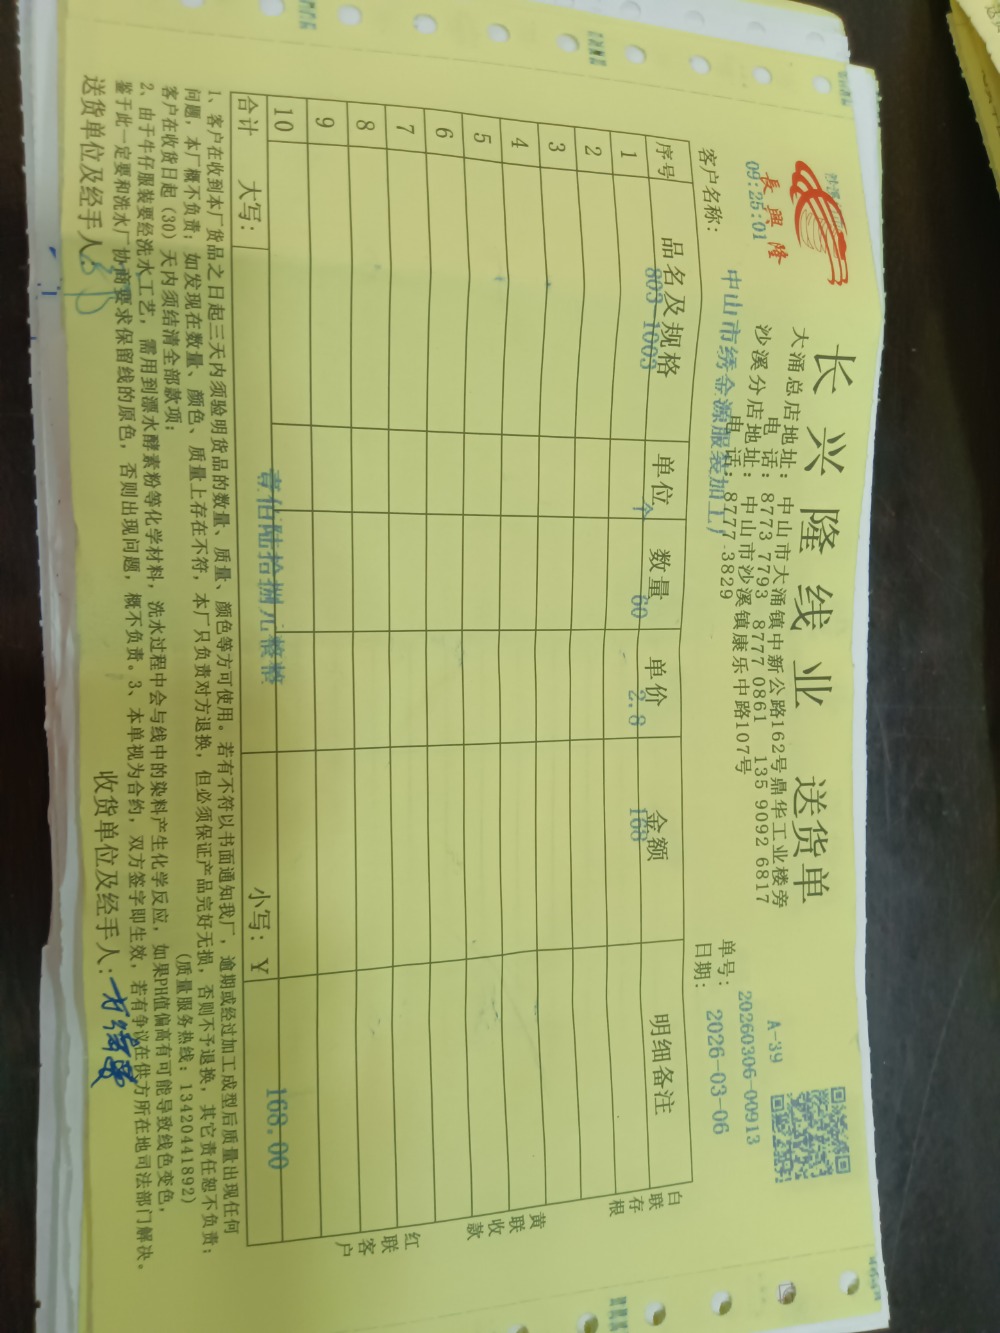 长兴隆线业 送货单
長興隆
09:25:01
大涌总店地址: 中山市大涌镇中新公路162号鼎华工业楼旁
电 话: 8773 7793 8777 0861 135 9092 6817
沙溪分店地址: 中山市沙溪镇康乐中路107号
电 话: 8777 3829
A-39
单号: 20260306-00913
客户名称: 中山市绣金源服装加工厂
日期: 2026-03-06
序号 品名及规格 单位 数量 单价 金额 明细备注
1 803-1003 个 60 2.8 168
2
3
4
5
6
7
8
9
10
合计 大写: 壹佰陆拾捌元整 小写: ¥ 168.00
白联存根
黄联收款
红联客户
1、客户在收到本厂货品之日起三天内须验明货品的数量、质量、颜色等方可使用。若有不符以书面通知我厂，逾期或经过加工成型后质量出现任何
问题，本厂概不负责；如发现在数量、颜色、质量上存在不符，本厂只负责对方退换，但必须保证产品完好无损，否则不予退换，其它责任恕不负责；
客户在收货日起（30）天内须结清全部款项； (质量服务热线: 13420441892)
2、由于牛仔服装要经洗水工艺，需用到漂水酵素粉等化学材料，洗水过程中会与线中的染料产生化学反应，如果PH值偏高有可能导致线色变色，
鉴于此一定要和洗水厂协商要求保留线的原色，否则出现问题，概不负责。3、本单视为合约，双方签字即生效，若有争议在供方所在地司法部门解决。
送货单位及经手人: 收货单位及经手人: